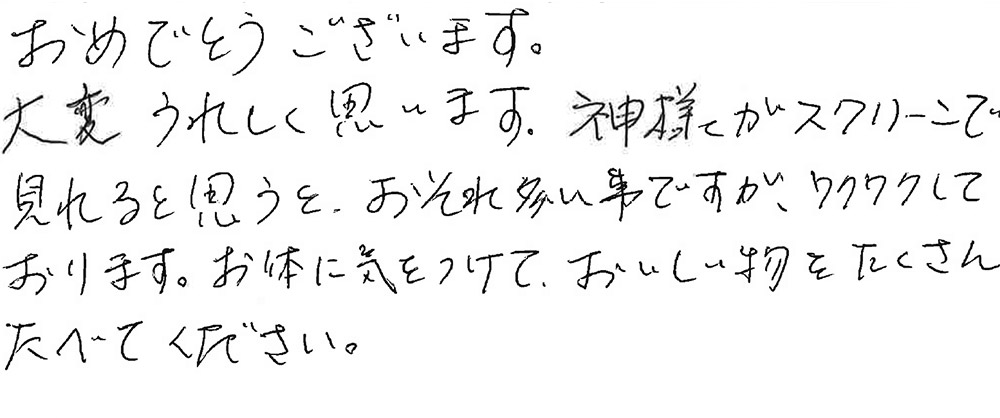 おめでとうございます。
大変うれしく思います。神様てがスクリーンで
見れると思うと、おそれ多い事ですが、ワクワクして
おります。お体に気をつけて、おいしい物をたくさん
たべてください。